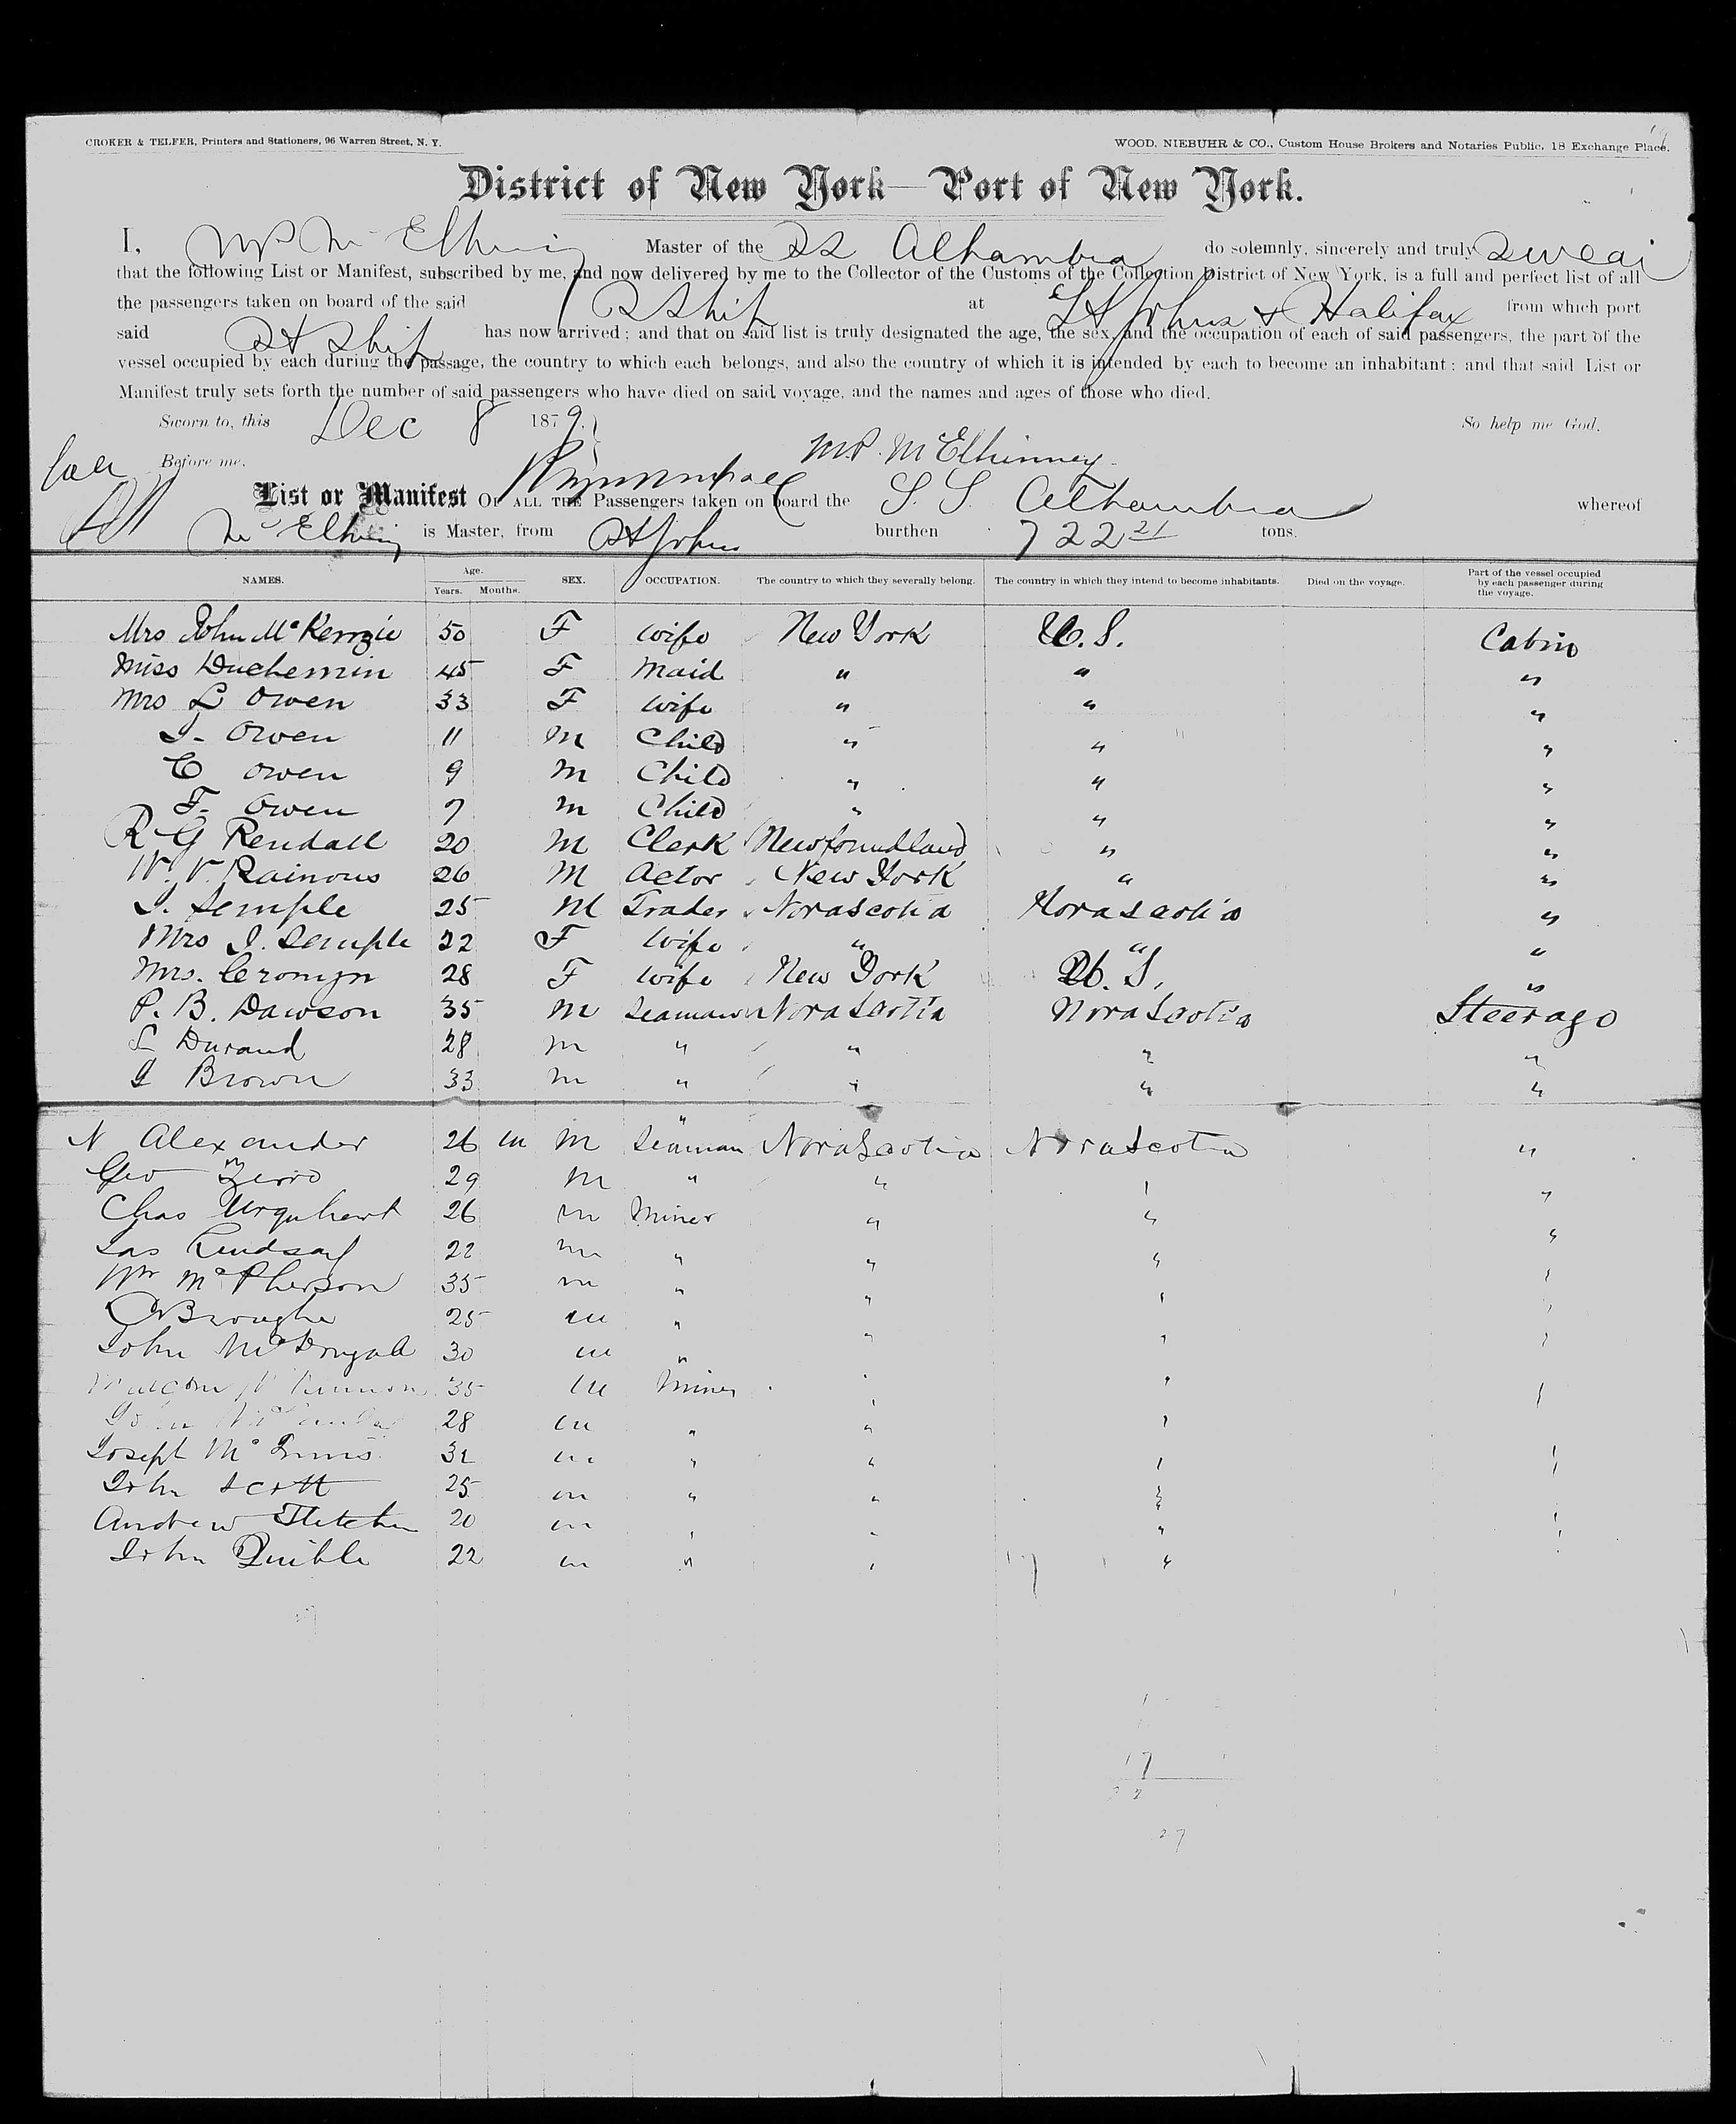 CROKER & TELFER, Printers and Stationers, 96 Warren Street, N. Y. WOOD, NIEBUHR & CO., Custom House Brokers and Notaries Public, 18 Exchange Place.
District of New York—Port of New York.
I, Master of the SS Alhambra do solemnly, sincerely and truly swear
that the following List or Manifest, subscribed by me, and now delivered by me to the Collector of the Customs of the Collection District of New York, is a full and perfect list of all
the passengers taken on board of the said S Ship at St Johns & Halifax from which port
said St Ship has now arrived; and that on said list is truly designated the age, the sex, and the occupation of each of said passengers, the part of the
vessel occupied by each during the passage, the country to which each belongs, and also the country of which it is intended by each to become an inhabitant; and that said List or
Manifest truly sets forth the number of said passengers who have died on said voyage, and the names and ages of those who died.
Sworn to, this Dec 8 1879. So help me God.
Before me, M.P. McElhinney
List or Manifest OF ALL THE Passengers taken on board the S. S. Alhambra whereof
is Master, from St Johns burthen 722 21 tons.
NAMES. Age. Years. Months. SEX. OCCUPATION. The country to which they severally belong. The country in which they intend to become inhabitants. Died on the voyage. Part of the vessel occupied by each passenger during the voyage.
Mrs John McKenzie 50 F wife New York U. S. Cabin
Miss Duchemin 45 F Maid " " "
Mrs L Owen 33 F wife " " "
Owen 11 M Child " " "
C Owen 9 M Child " " "
F. Owen 7 M Child " " "
R G Rendall 20 M Clerk Newfoundland " "
26 M Actor New York " "
J. Semple 25 M Trader Nova Scotia Nova Scotia "
Mrs J. Semple 22 F Wife " " "
Mrs. Cronyn 28 F wife New York U. S. "
P. B. Dawson 35 M Seaman Nova Scotia Nova Scotia Steerage
S Durand 28 M " " " "
Brown 33 M " " " "
N Alexander 26 M Seaman Nova Scotia Nova Scotia "
Geo 29 M " " "
Chas Urquhart 26 M Miner " " "
Jas Lindsay 22 M " " " "
Wm McPherson 35 M " "
25 M " "
John McDougall 30 M " "
35 M Miner
28 M " "
Joseph McInnis 32 M " "
John Scott 25 M " "
Andrew Fletcher 20 M " "
John Quible 22 M " "
17
27